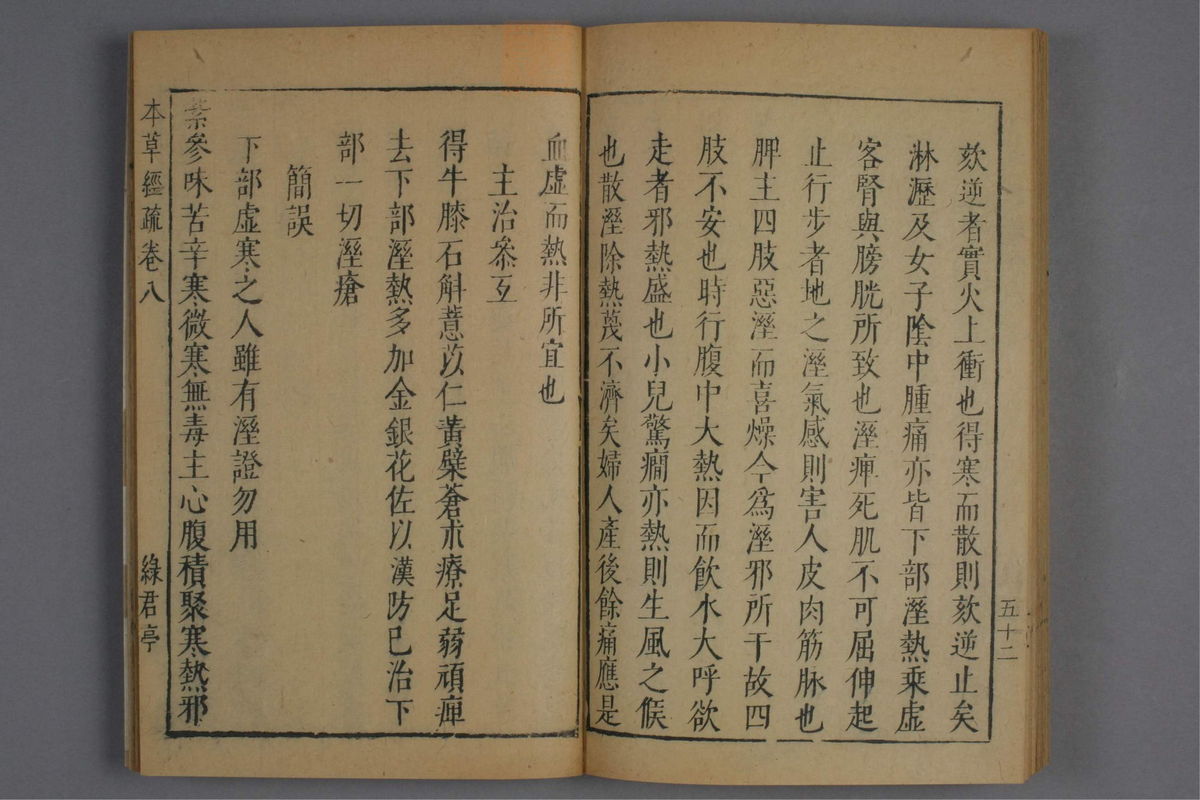 欬逆者實火上衝也得寒而散則欬逆止矣
淋瀝及女子陰中腫痛亦皆下部溼熱乘虛
客腎與膀胱所致也溼痺死肌不可屈伸起
止行步者地之溼氣感則害人皮肉筋脉也
脾主四肢惡溼而喜燥今為溼邪所干故四
肢不安也時行腹中大熱因而飲水大呼欲
走者邪熱盛也小兒驚癎亦熱則生風之候
也散溼除熱蔑不濟矣婦人產後餘痛應是
五十二
血虛而熱非所宜也
主治叅互
得牛膝石斛薏苡仁黃檗蒼朮療足弱頑痺
去下部溼熱多加金銀花佐以漢防已治下
部一切溼瘡
簡誤
下部虛寒之人雖有溼證勿用
紫參味苦辛寒微寒無毒主心腹積聚寒熱邪
本草經疏卷八
綠君亭